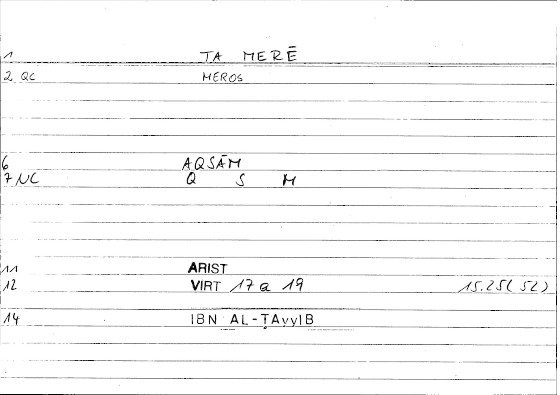 1 TA MERĒ
2 QC MEROS
6 AQSĀM
7 NC Q S M
11 ARIST
12 VIRT 17 a 19 15.25(52)
14 IBN AL-ṬAyyIB